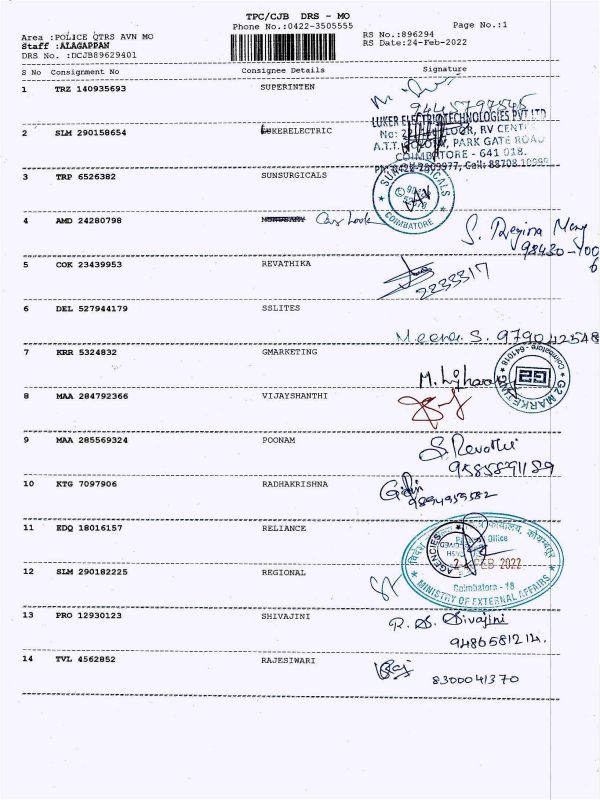 TPC/CJB DRS - MO
Phone No.:0422-3505555
Page No.:1
Area :POLICE QTRS AVN MO
Staff :ALAGAPPAN
DRS No. :DCJB89629401
RS No.:896294
RS Date:24-Feb-2022
S No Consignment No Consignee Details Signature
1 TRZ 140935693 SUPERINTEN
9445797545
2 SLM 290158654 LUKERELECTRIC
LUKER ELECTRIC TECHNOLOGIES PVT LTD
No: FLOOR, RV CENTRE
A.T.T. COLONY, PARK GATE ROAD
COIMBATORE - 641 018.
Ph: 0422-2809977, Cell: 88708 10995
3 TRP 6526382 SUNSURGICALS
SUN SURGICALS
COIMBATORE
4 AMD 24280798
S. Regina Mary
98430-4006
5 COK 23439953 REVATHIKA
2233317
6 DEL 527944179 SSLITES
Meena S. 979042548
7 KRR 5324832 GMARKETING
G2 MARKETING
Coimbatore - 641018
G2
8 MAA 284792366 VIJAYSHANTHI
9 MAA 285569324 POONAM
S. Revathi
9585891189
10 KTG 7097906 RADHAKRISHNA
9894959582
11 EDQ 18016157 RELIANCE
AGENCIES
Office
FEB 2022
Coimbatore - 18
MINISTRY OF EXTERNAL AFFAIRS
12 SLM 290182225 REGIONAL
13 PRO 12930123 SHIVAJINI
R. S. Sivajini
9486581214.
14 TVL 4562852 RAJESIWARI
8300041370